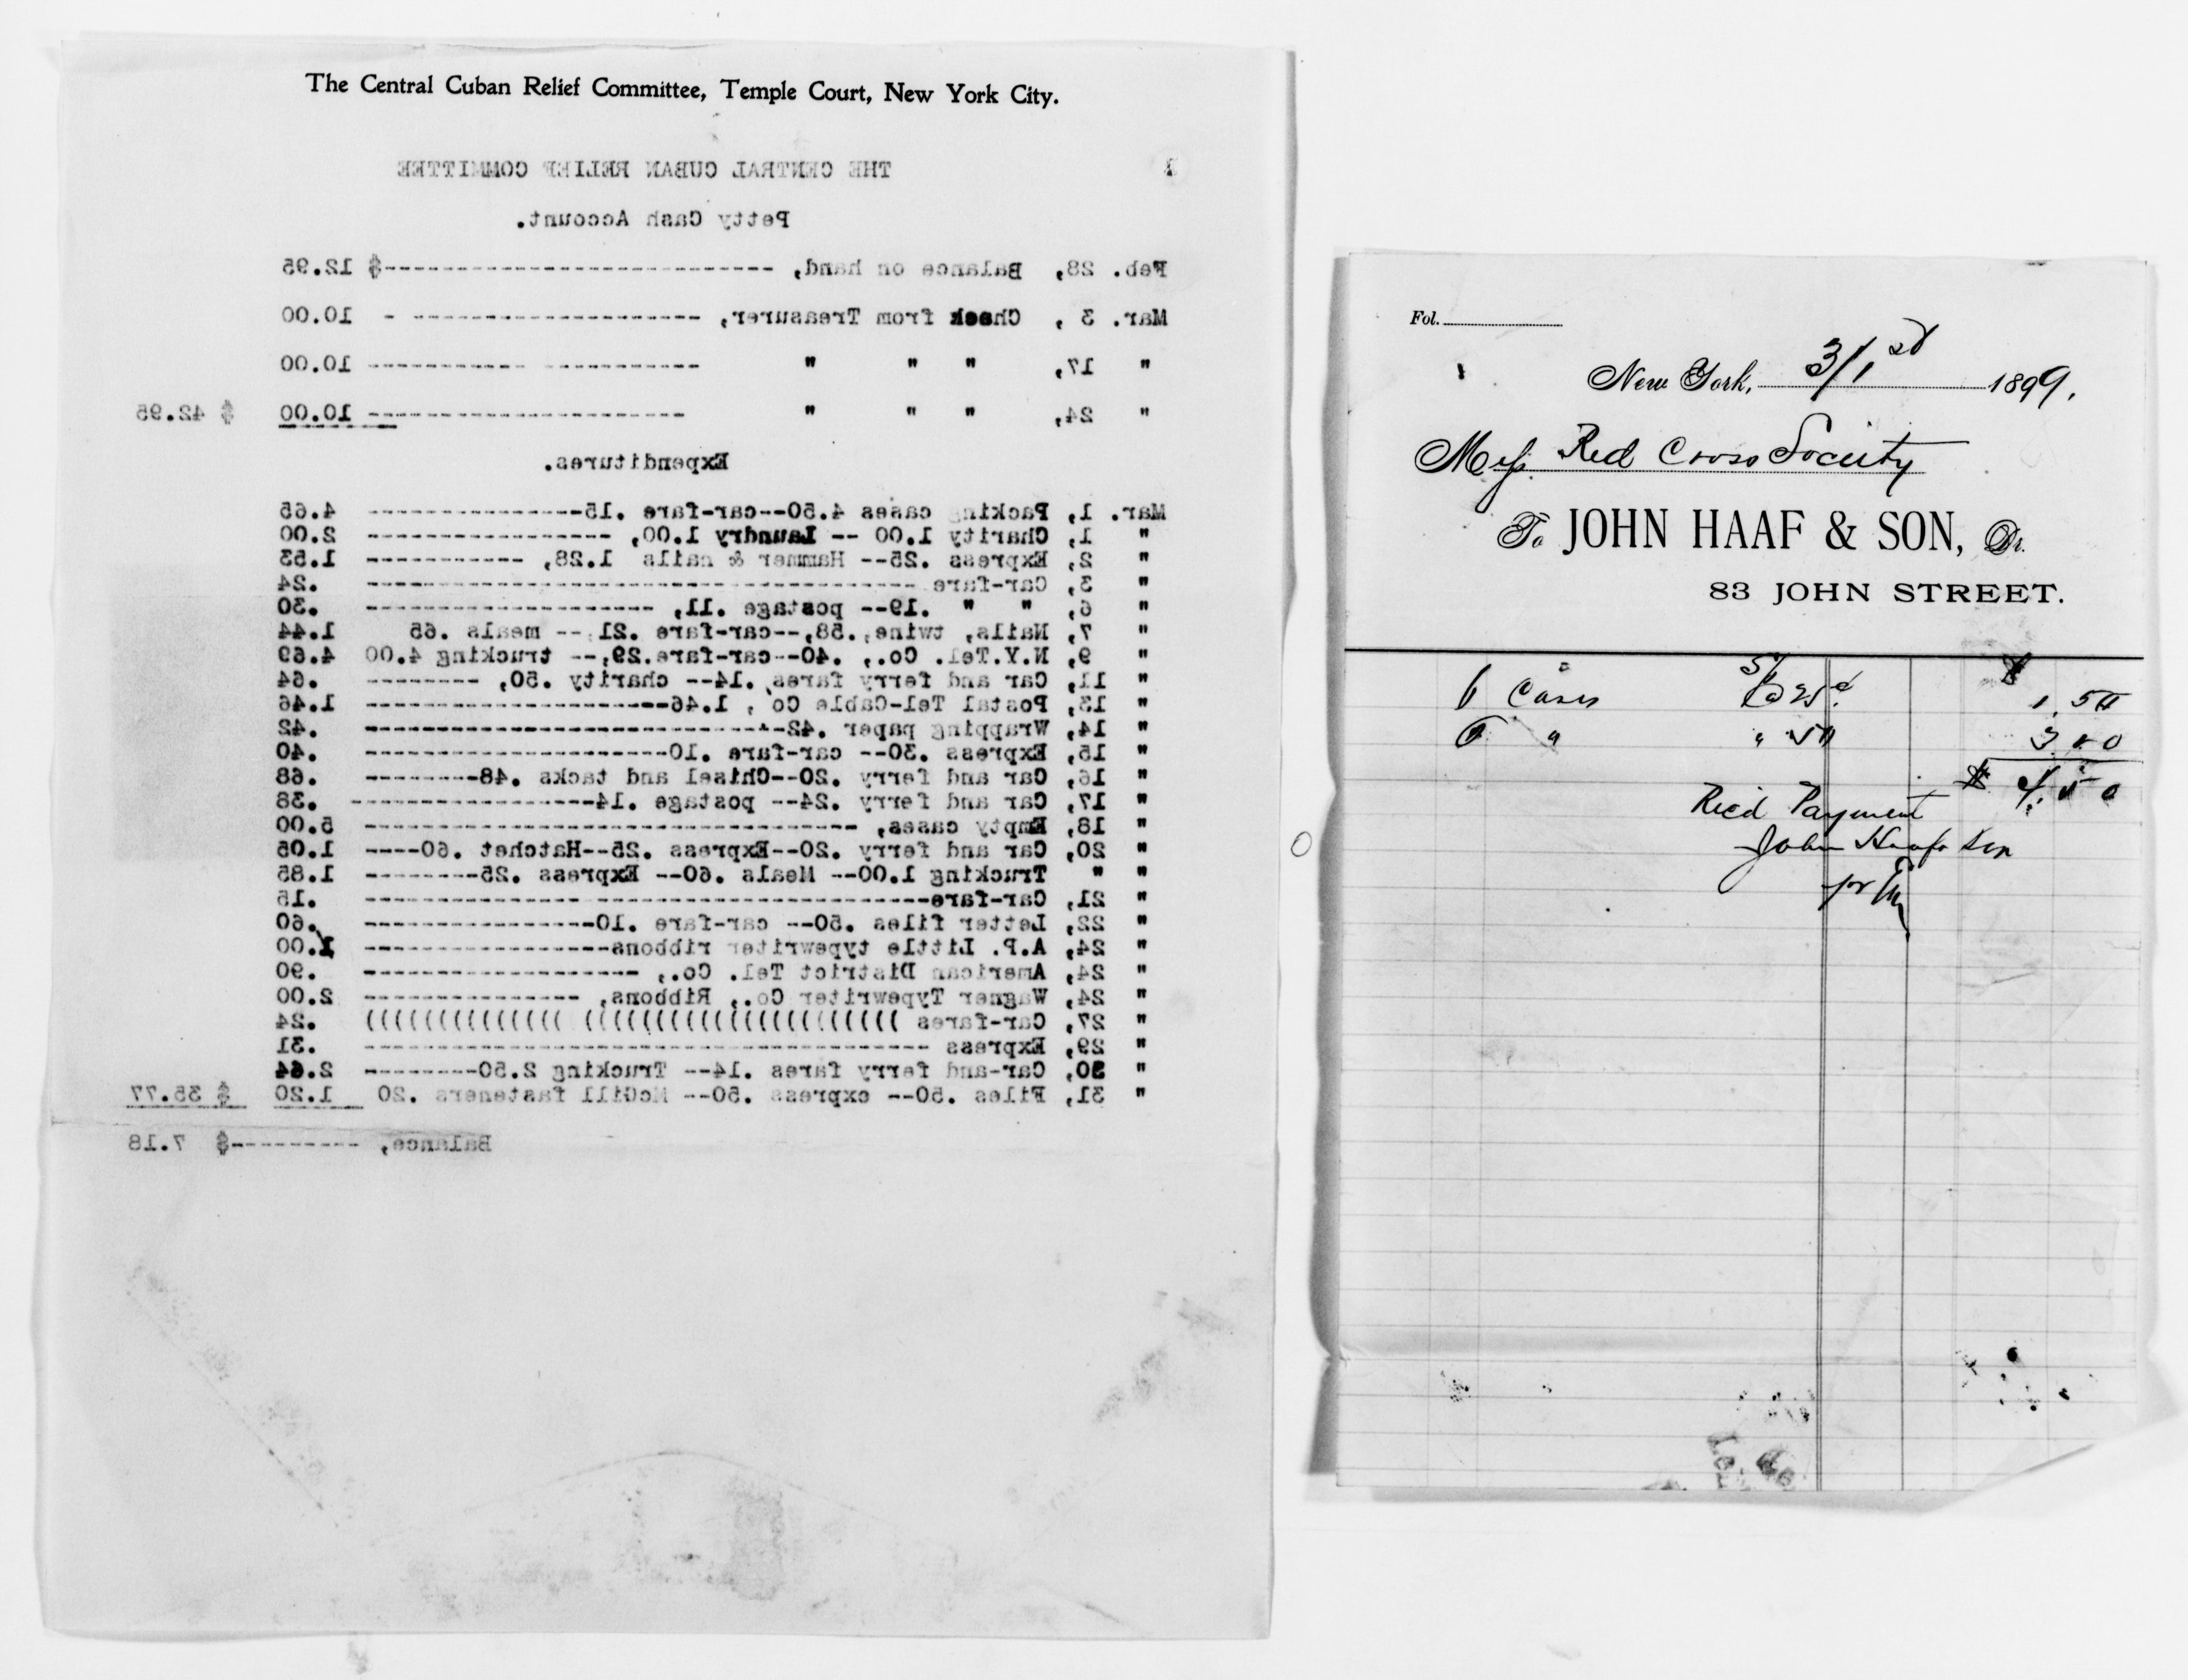 The Central Cuban Relief Committee, Temple Court, New York City.
THE CENTRAL CUBAN RELIEF COMMITTEE
Petty Cash Account.
Feb. 28, Balance on hand, ----------------------------$ 12.95
Mar. 3 , Check from Treasurer, --------------------- - 10.00
" 17, " " " ----------- ------------ 10.00
" 24, " " " ----------------------- 10.00 $ 42.95
Expenditures.
Mar. 1, Packing cases 4.50--car-fare .15---------------- 4.65
" 1, Charity 1.00 -- Laundry 1.00, ------------------ 2.00
" 2, Express .25-- Hammer & nails 1.28, ----------- 1.53
" 3, Car-fare --------------------------------------- .24
" 6, " " .19-- postage .11, -------------------- .30
" 7, Nails, twine,.58,--car-fare .21,-- meals .65 1.44
" 9, N.Y.Tel. Co., .40--car-fare.29,-- trucking 4.00 4.69
" 11, Car and ferry fares, .14-- charity .50, -------- .64
" 13, Postal Tel-Cable Co , 1.46---------------------- 1.46
" 14, Wrapping paper .42------------------------------ .42
" 15, Express .30-- car-fare .10--------------------- .40
" 16, Car and ferry .20--Chisel and tacks .48-------- .68
" 17, Car and ferry .24-- postage .14----------------- .38
" 18, Empty cases, ----------------------------------- 5.00
" 20, Car and ferry .20--Express .25--Hatchet .60---- 1.05
" " Trucking 1.00-- Meals .60-- Express .25-------- 1.85
" 21, Car-fare---------------------------------------- .15
" 22, Letter files .50-- car-fare .10---------------- .60
" 24, A.P. Little typewriter ribbons----------------- 1.00
" 24, American District Tel. Co., ------------------- .90
" 24, Wagner Typewriter Co., Ribbons, --------------- 2.00
" 27, Car-fares )))))))))))))))))))))) )))))))))))))) .24
" 29, Express ---------------------------------------- .31
" 30, Car-and ferry fares .14-- Trucking 2.50-------- 2.64
" 31, Files .50-- express .50-- McGill fasteners .20 1.20 $ 35.77
Balance, ---------$ 7.18
Fol.
New York, 3/1st 1899.
Mess. Red Cross Society
To JOHN HAAF & SON, Dr.
83 JOHN STREET.
6 Cases @ 25¢ $ 1.50
6 " " 50 3 00
$ 4.50
Rec'd Payment
John Haaf & Son
pr